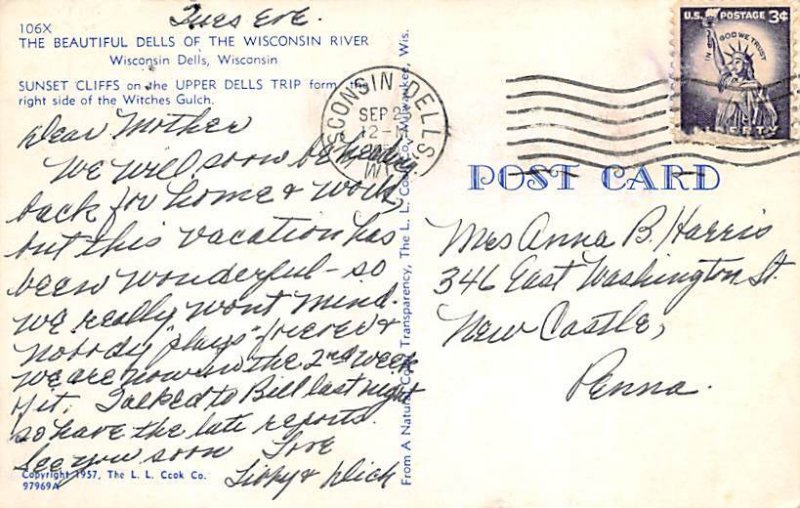 Tues Eve.
106X
THE BEAUTIFUL DELLS OF THE WISCONSIN RIVER
Wisconsin Dells, Wisconsin
SUNSET CLIFFS on the UPPER DELLS TRIP form the
right side of the Witches Gulch.
Dear Mother
We will soon be heading
back for home & work,
but this vacation has
been wonderful - so
we really wont mind.
Nobody "plays" forever &
we are now in the 2nd week
of it. Talked to Bill last night
so have the late reports.
See you soon Love
Libby & Dick
Copyright 1957, The L. L. Cook Co.
97969A
From A Natural Color Transparency, The L. L. Cook Co., Milwaukee, Wis.
WISCONSIN DELLS.
SEP 2
12-
WIS
U.S. POSTAGE 3¢
IN GOD WE TRUST
LIBERTY
POST CARD
Mrs Anna B. Harris
346 East Washington St.
New Castle,
Penna.